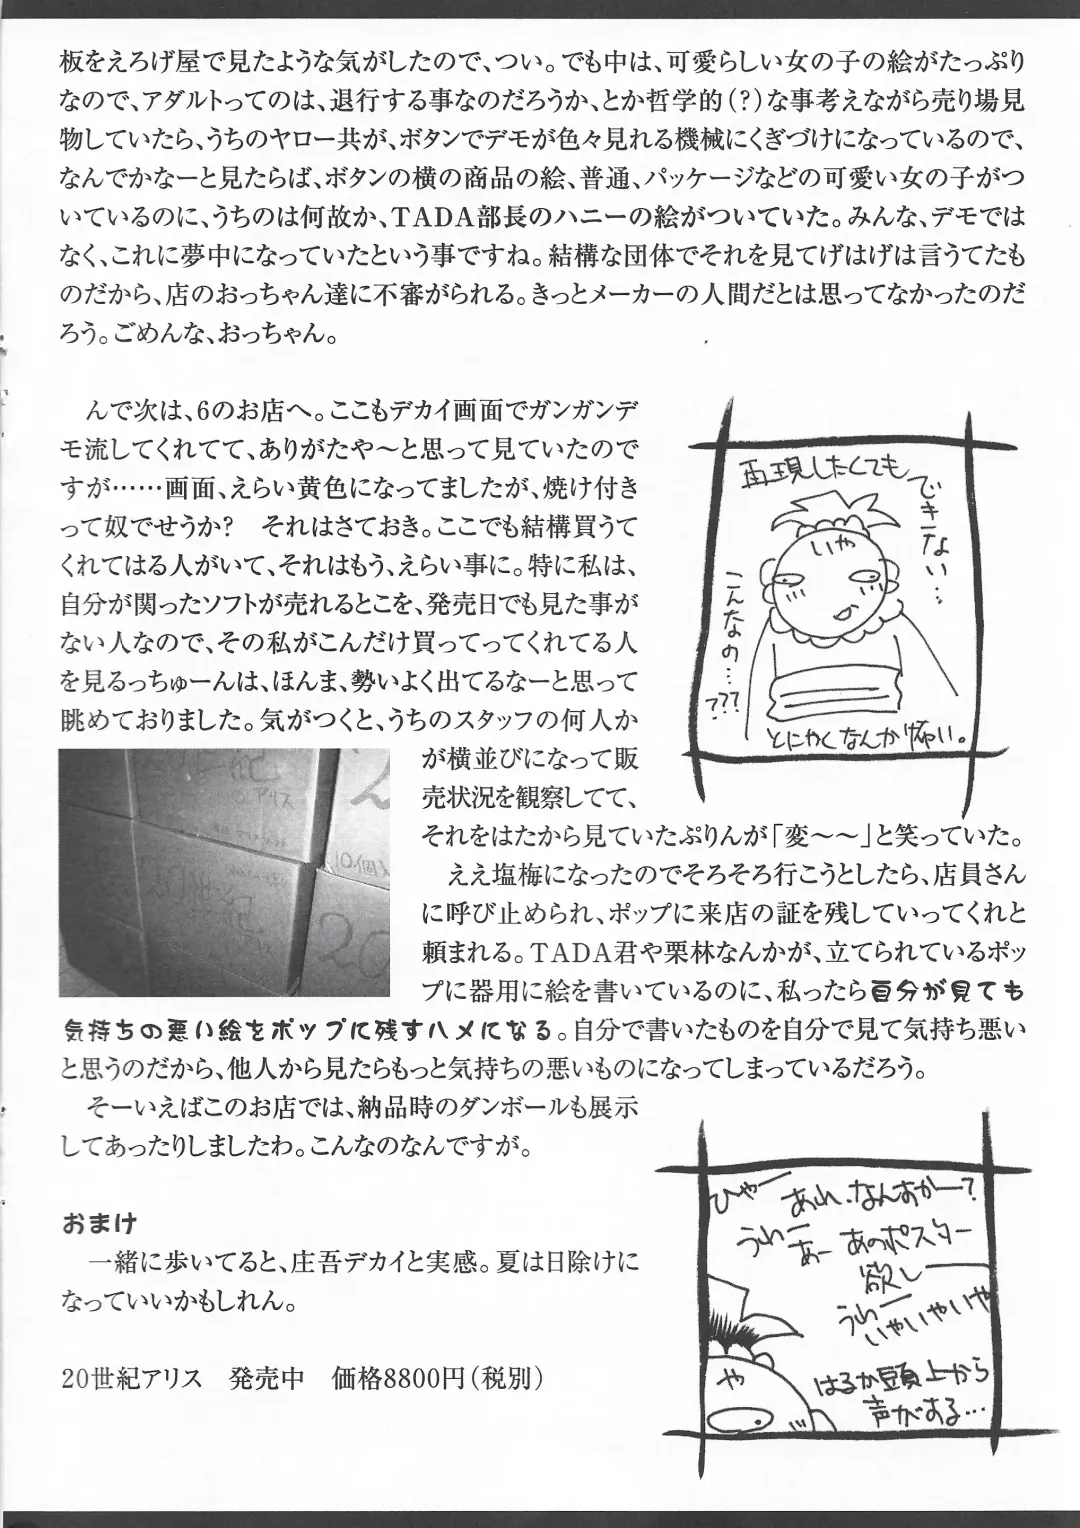 板をえろげ屋で見たような気がしたので、つい。でも中は、可愛らしい女の子の絵がたっぷり
なので、アダルトってのは、退行する事なのだろうか、とか哲学的(?)な事考えながら売り場見
物していたら、うちのヤロー共が、ボタンでデモが色々見れる機械にくぎづけになっているので、
なんでかなーと見たらば、ボタンの横の商品の絵、普通、パッケージなどの可愛い女の子がつ
いているのに、うちのは何故か、TADA部長のハニーの絵がついていた。みんな、デモでは
なく、これに夢中になっていたという事ですね。結構な団体でそれを見てげはげは言うてたも
のだから、店のおっちゃん達に不審がられる。きっとメーカーの人間だとは思ってなかったのだ
ろう。ごめんな、おっちゃん。
んで次は、6のお店へ。ここもデカイ画面でガンガンデ
モ流してくれてて、ありがたや〜と思って見ていたので
すが……画面、えらい黄色になってましたが、焼け付き
って奴でせうか?　それはさておき。ここでも結構買うて
くれてはる人がいて、それはもう、えらい事に。特に私は、
自分が関ったソフトが売れるとこを、発売日でも見た事が
ない人なので、その私がこんだけ買ってってくれてる人
を見るっちゅーんは、ほんま、勢いよく出てるなーと思って
眺めておりました。気がつくと、うちのスタッフの何人か
が横並びになって販
売状況を観察してて、
それをはたから見ていたぷりんが「変〜〜」と笑っていた。
ええ塩梅になったのでそろそろ行こうとしたら、店員さん
に呼び止められ、ポップに来店の証を残していってくれと
頼まれる。TADA君や栗林なんかが、立てられているポッ
プに器用に絵を書いているのに、私ったら自分が見ても
気持ちの悪い絵をポップに残すハメになる。自分で書いたものを自分で見て気持ち悪い
と思うのだから、他人から見たらもっと気持ちの悪いものになってしまっているだろう。
そーいえばこのお店では、納品時のダンボールも展示
してあったりしましたわ。こんなのなんですが。
おまけ
一緒に歩いてると、庄吾デカイと実感。夏は日除けに
なっていいかもしれん。
20世紀アリス　発売中　価格8800円(税別)
再現したくても
できない…
いや
こんなの…
???
とにかくなんか怖い。
アリス
20
ひゃー
あれ、なんすかー?
うわー
あー あのポスター
欲しー
うわー
いやいやいや
や
はるか頭上から
声がする…